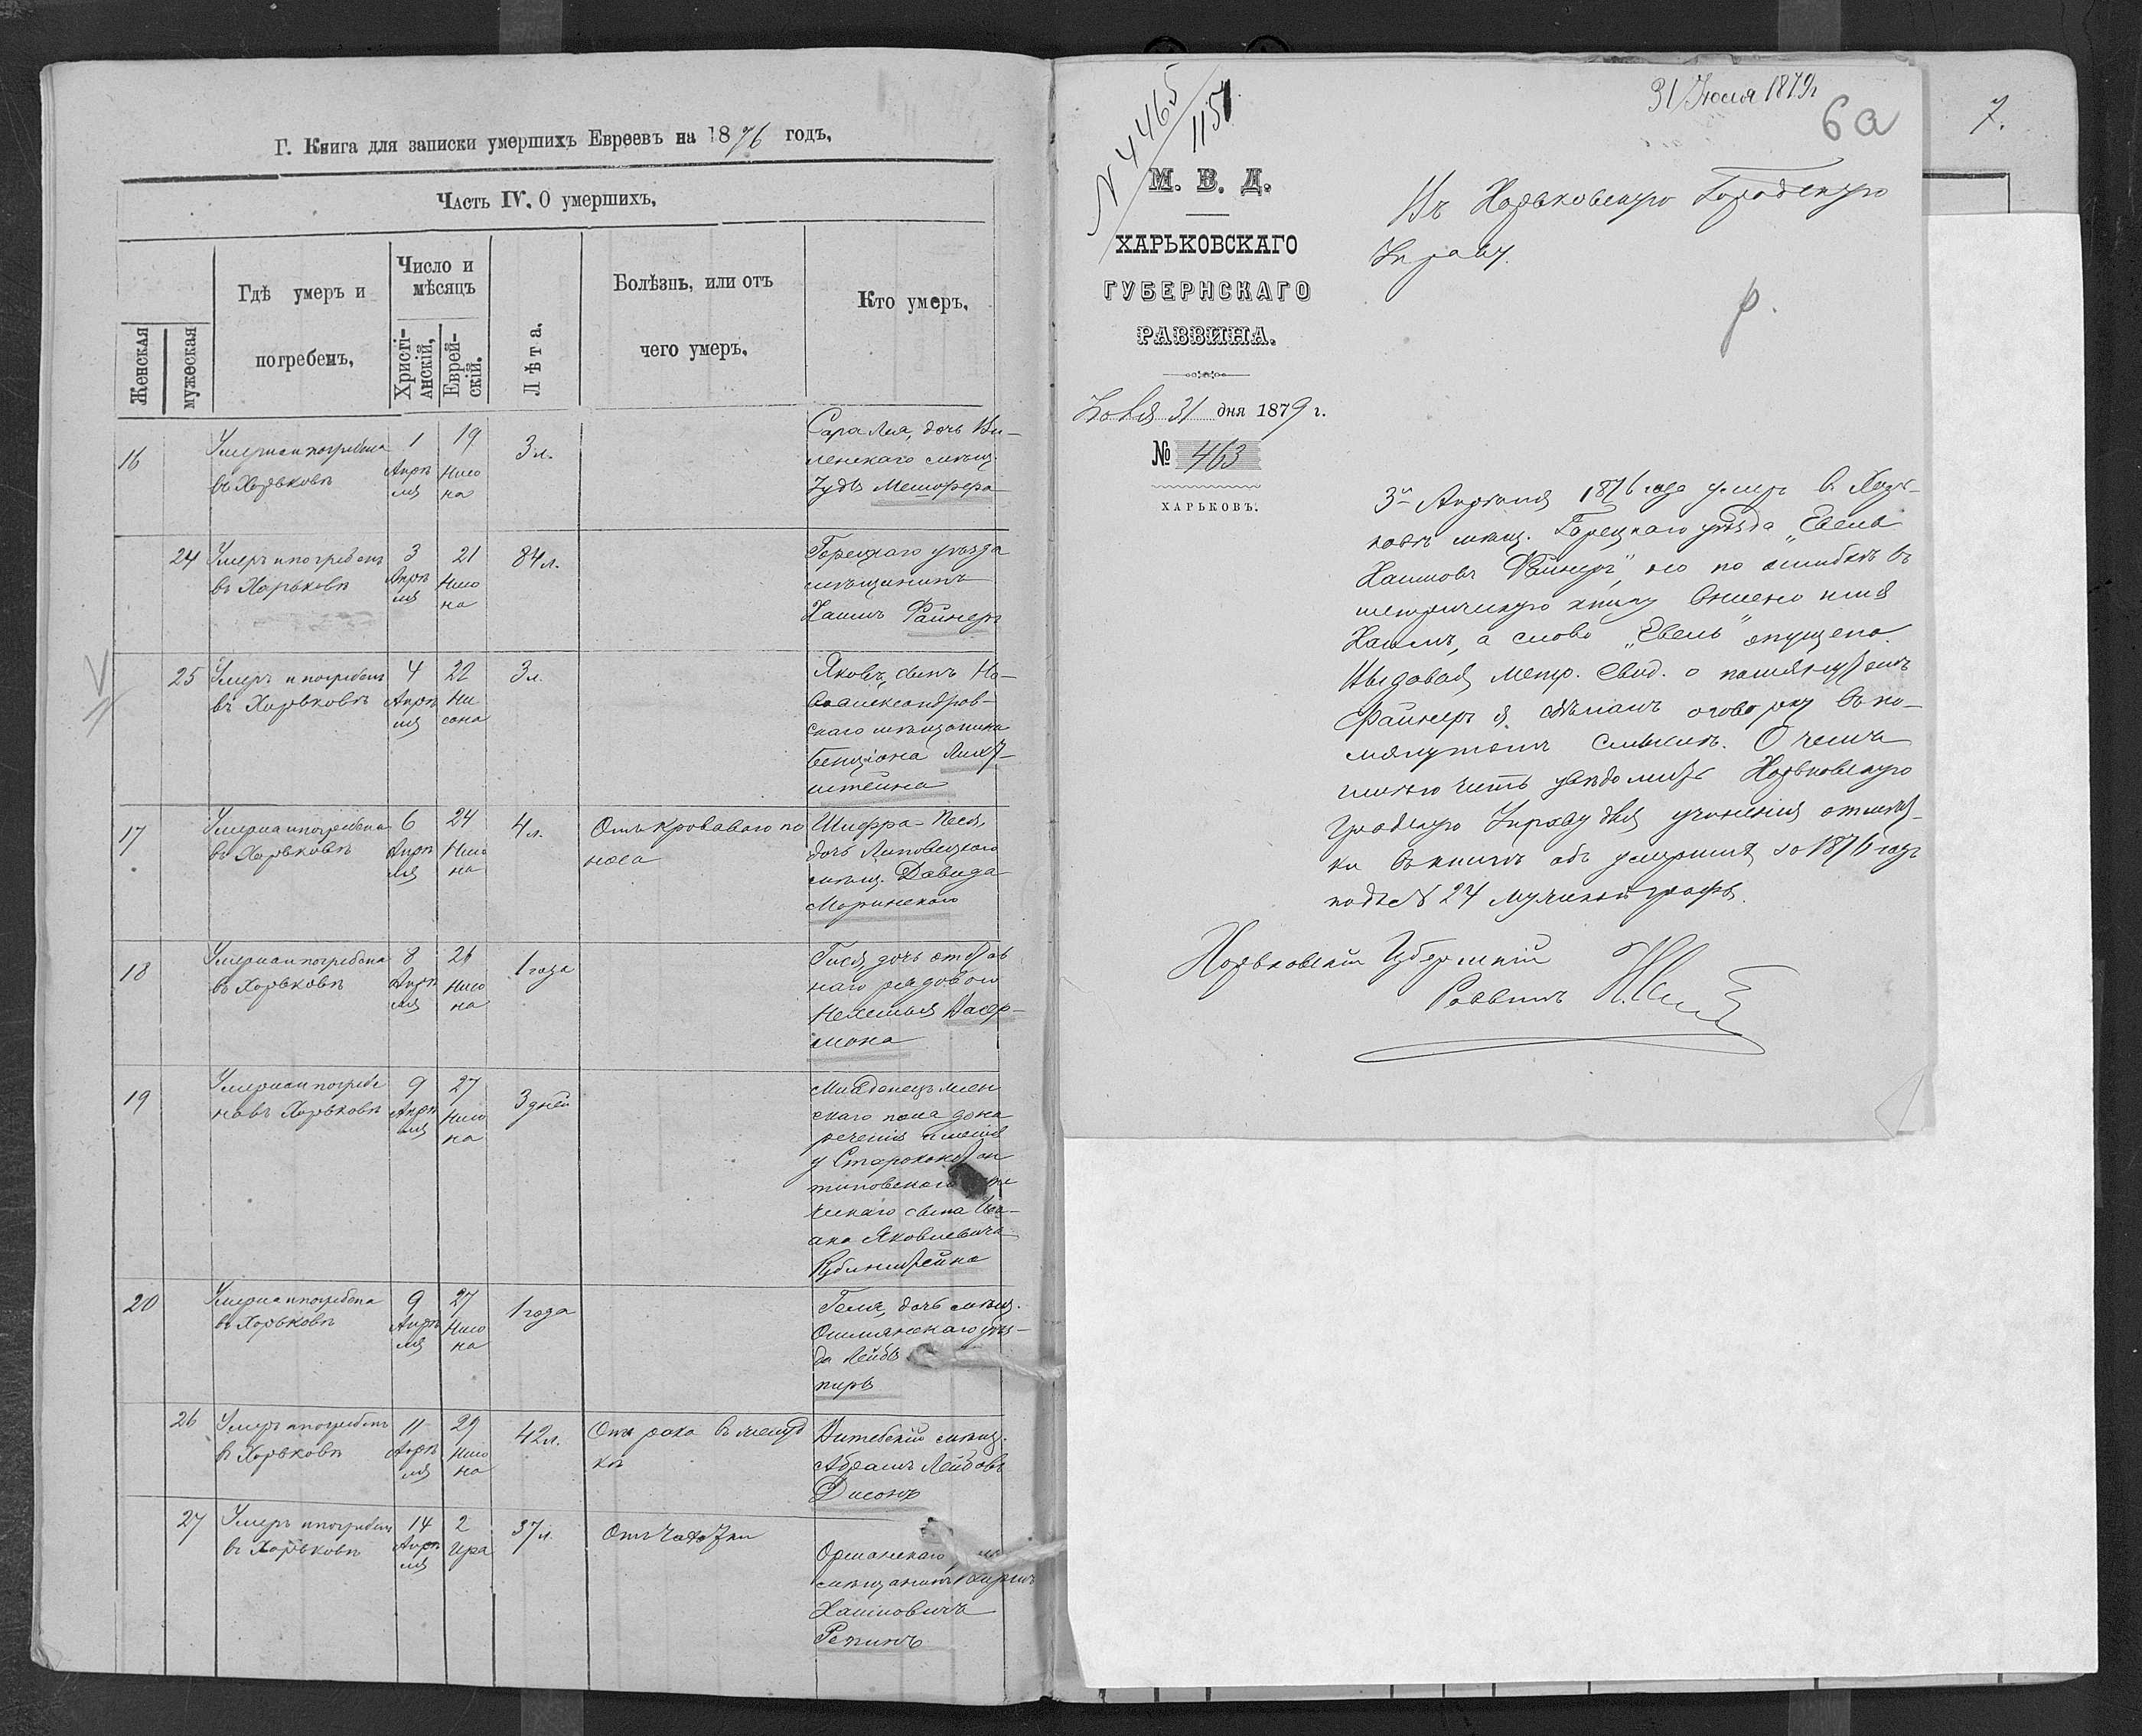 Г. Книга для записки умершихъ Евреевъ на 1876 годъ,
Часть IV. О умершихъ,
Женская
мужеская
Гдѣ умеръ и
погребенъ,
Число и
мѣсяцъ
Христі-
анскій,
Еврей-
скій.
Лѣта.
Болѣзнь, или отъ
чего умеръ,
Кто умеръ,
16
Умерла и погребена
въ Харьковѣ
1
Апрѣ
ля
19
Нисо
на
3 л.
Сара Лея, дочь Ви-
ленскаго мѣщ.
Іуды Мешорера
24
Умеръ и погребенъ
въ Харьковѣ
3
Апрѣ
ля
21
Нисо
на
84 л.
Горецкаго уѣзда
мѣщанинъ
Хаимъ Файнеръ
25
Умеръ и погребенъ
въ Харьковѣ
4
Апрѣ
ля
22
Ни
сона
3 л.
Яковъ, сынъ Но-
воалександров-
скаго мѣщанина
Бенціона Лихт-
штейна
17
Умерла и погребена
въ Харьковѣ
6
Апрѣ
ля
24
Нисо
на
4 л.
Отъ кроваваго по
носа
Шифра-Песя,
дочь Липовецкаго
мѣщ. Давида
Моринскаго
18
Умерла и погребена
въ Харьковѣ
8
Апрѣ
ля
26
Нисо
на
1 года
Гися, дочь отстав
наго рядового
Нехемья Васер-
мана
19
Умерла и погребе
на въ Харьковѣ
9
Апрѣ
ля
27
Нисо
на
3 дней
Младенецъ жен
скаго пола до на
реченія имени
у Староконстан
тиновскаго
ческаго сына Иса-
ака Яковлевича
Рубинштейна
20
Умерла и погребена
въ Харьковѣ
9
Апрѣ
ля
27
Нисо
на
1 года
Геля, дочь мѣщ.
Ошмянскаго уѣз-
да Лейбы
26
Умеръ и погребенъ
въ Харьковѣ
11
Апрѣ
ля
29
Нисо
на
42 л.
Отъ рака въ желуд
кѣ
Витебскій мѣщ.
Абрамъ Лейбовъ
Дисонъ
27
Умеръ и погребенъ
въ Харьковѣ
14
Апрѣ
ля
2
Іира
37 л.
Отъ чахотки
Оршанскаго
мѣщанинъ
Хаимовичъ
Репинъ
N 4465
1151
31 Іюля 1879 г
6а
7.
М. В. Д.
ХАРЬКОВСКАГО
ГУБЕРНСКАГО
РАВВИНА.
Іюля 31 дня 1879 г.
№ 463
ХАРЬКОВЪ.
Въ Харьковскую Городскую
Управу.
3го Апрѣля 1876 года умеръ въ Харь-
ковѣ мѣщ. Горецкаго уѣзда „Евель
Хаимовъ Файнеръ", но по ошибкѣ въ
метрическую книгу внесено имя
Хаимъ, а слово „Евель" опущено.
Выдавая метр. свид. о помянутомъ
Файнерѣ я сдѣлалъ оговорку въ по-
мянутомъ смыслѣ. О чемъ
имѣю честь увѣдомить Харьковскую
Градскую Управу для учиненія отмѣт-
ки въ книгѣ объ умершихъ за 1876 годъ
подъ № 24 мужской графы.
Харьковскій Губернскій
Раввинъ